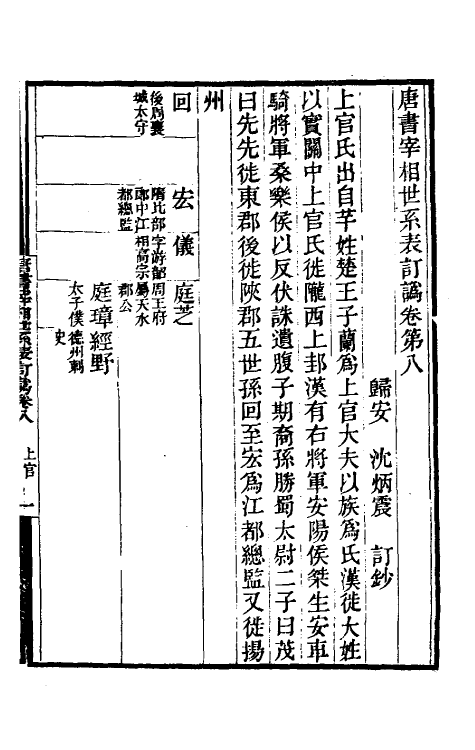 唐書宰相世系表訂譌卷第八
歸安 沈炳震 訂鈔
上官氏出自芈姓楚王子蘭爲上官大夫以族爲氏漢徙大姓
以實關中上官氏徙隴西上邽漢有右將軍安陽侯桀生安車
騎將軍桑樂侯以反伏誅遺腹子期裔孫勝蜀太尉二子曰茂
曰先先徙東郡後徙陝郡五世孫回至宏爲江都總監又徙揚
州
回
後周襄
城太守
宏
隋比部
郎中江
都總監
儀
字游韶
相高宗
庭芝
周王府
屬天水
郡公
庭璋
太子僕
經野
德州刺
史
唐書宰相世系表訂譌卷八
上官
一